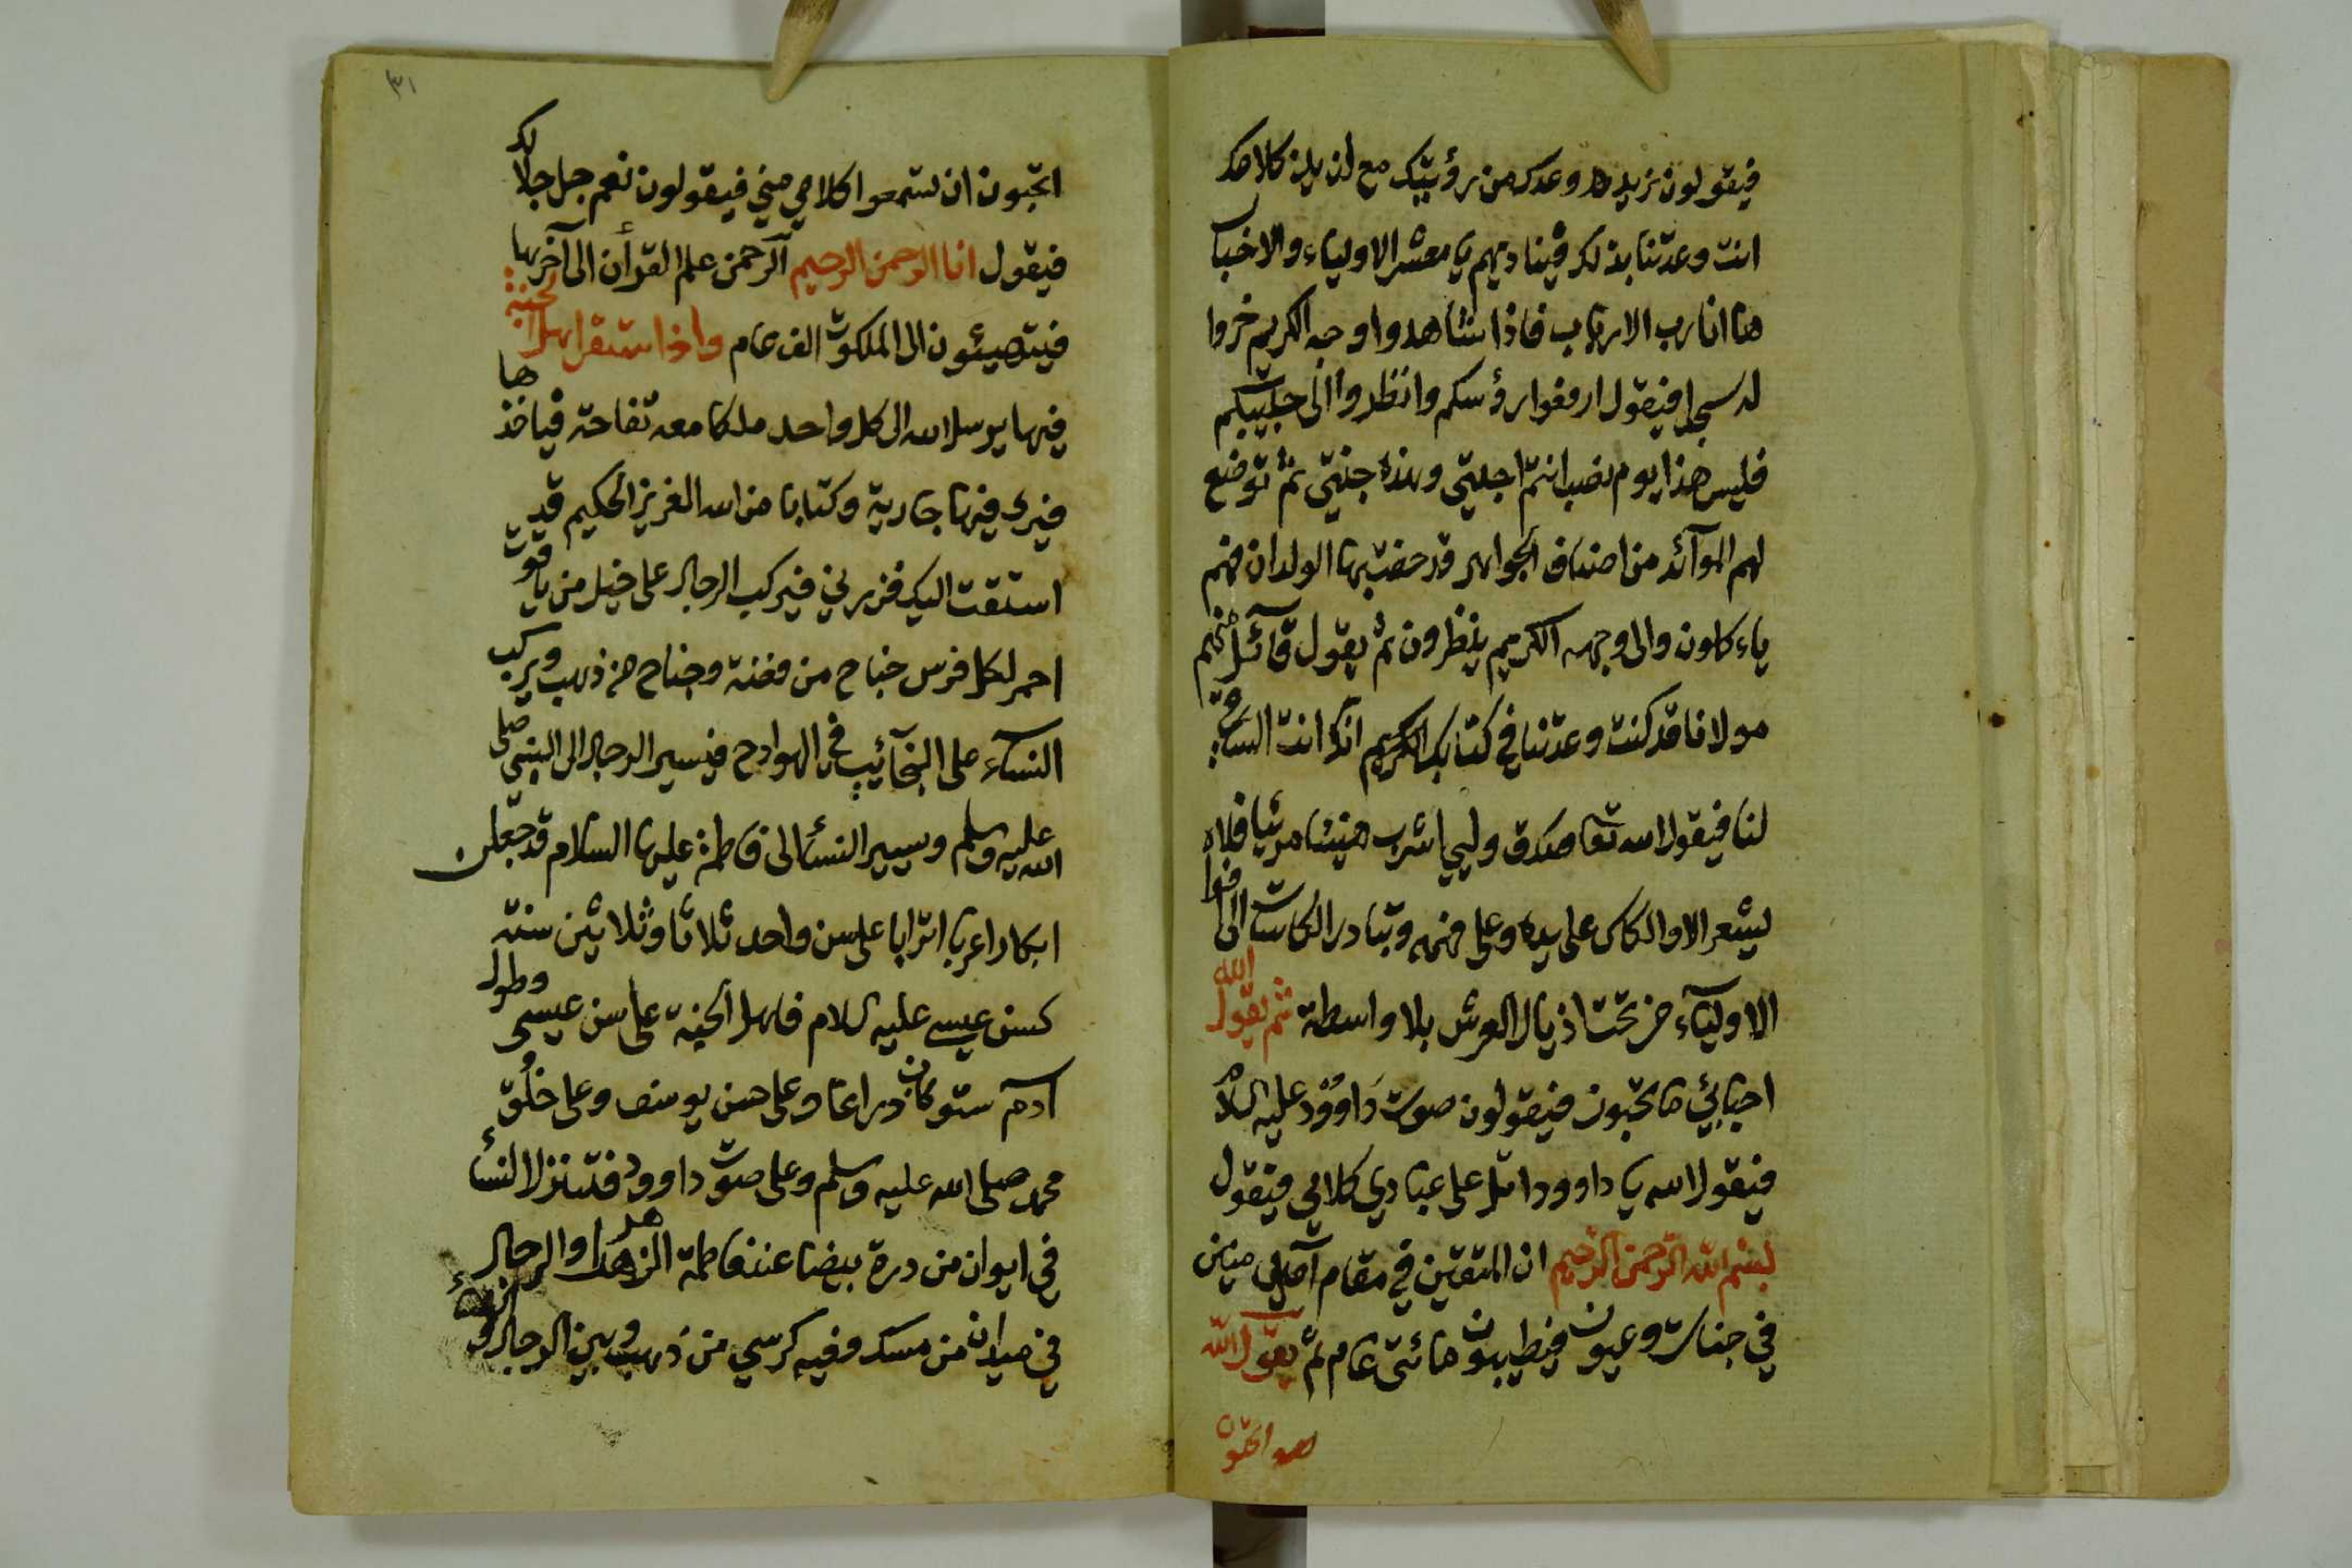 فيقولون نريد وعدك من رؤيتك مع لذيذ كلامك
انت وعدتنا بذلك فيناديهم يا معشر الاولياء والاخيا
ها انا رب الارباب فاذا شاهدوا وجه الكريم خروا
له سجدا فيقول ارفعوا رؤسكم وانظروا الى حبيبكم
فليس هذا يوم نصب انتم احبتي وهذه جنتي ثم توضع
لهم الموآئد من اصناف الجواهر قد حفت بها الولدان فهم
ياءكلون والى وجهه الكريم ينظرون ثم يقول قآئل منهم
مولانا قد كنت وعدتنا في كتابك الكريم انك انت الساقي
لنا فيقول الله تعا صدق وليي اشرب هنيئا مريئا فلا
يشعر الا والكاس على يده وعلى فمه وتبادر الكاسات الى افوا
الاوليآء من تحت اذيال العرش بلا واسطة ثم يقول الله
احبائي ما تحبون فيقولون صوت داوود عليه السلام
فيقول الله يا داوود اتل على عبادي كلامي فيقول
بسم الله الرحمن الرحيم ان المتقين في مقام آمين
في جنات وعيون فيطيبون مائتى عام ثم يقول الله
اتحبون
٣١
اتحبون ان تسمعوا كلامي مني فيقولون نعم جل جلالك
فيقول انا الرحمن الرحيم الرحمن علم القرأن الى آخرها
فيتهيئون الى الملكوت الف عام واذا استقر اهل الجنة
فيها يرسل الله الى كل واحد ملكا معه تفاحة فياخذها
فيرى فيها جارية وكتابا من الله العزيز الحكيم قد
استقت اليك فزرني فيركب الرجال على خيل من ياقوت
احمر لكل فرس جناح من فضة وجناح من ذهب ويركب
النسآء على النجآئب في الهوادج فيسير الرجال الى النبي صلى
الله عليه وسلم ويسير النسأ الى فاطمة عليها السلام قد جعلن
ابكارا عربا اترابا على سن واحد ثلاثا وثلاثين سنة
كسن عيسى عليه السلام فاهل الجنة على سن عيسى وطول
آدم ستو كان دراعا وعلى حسن يوسف وعلى خلق
محمد صلى الله عليه وسلم وعلى صوت داوود فتنزل النسأ
في ايوان من درة بيضا عند فاطمة الزهرا والرجال
في ميدان من مسك وفيه كرسي من ذهب وبين الرجال و